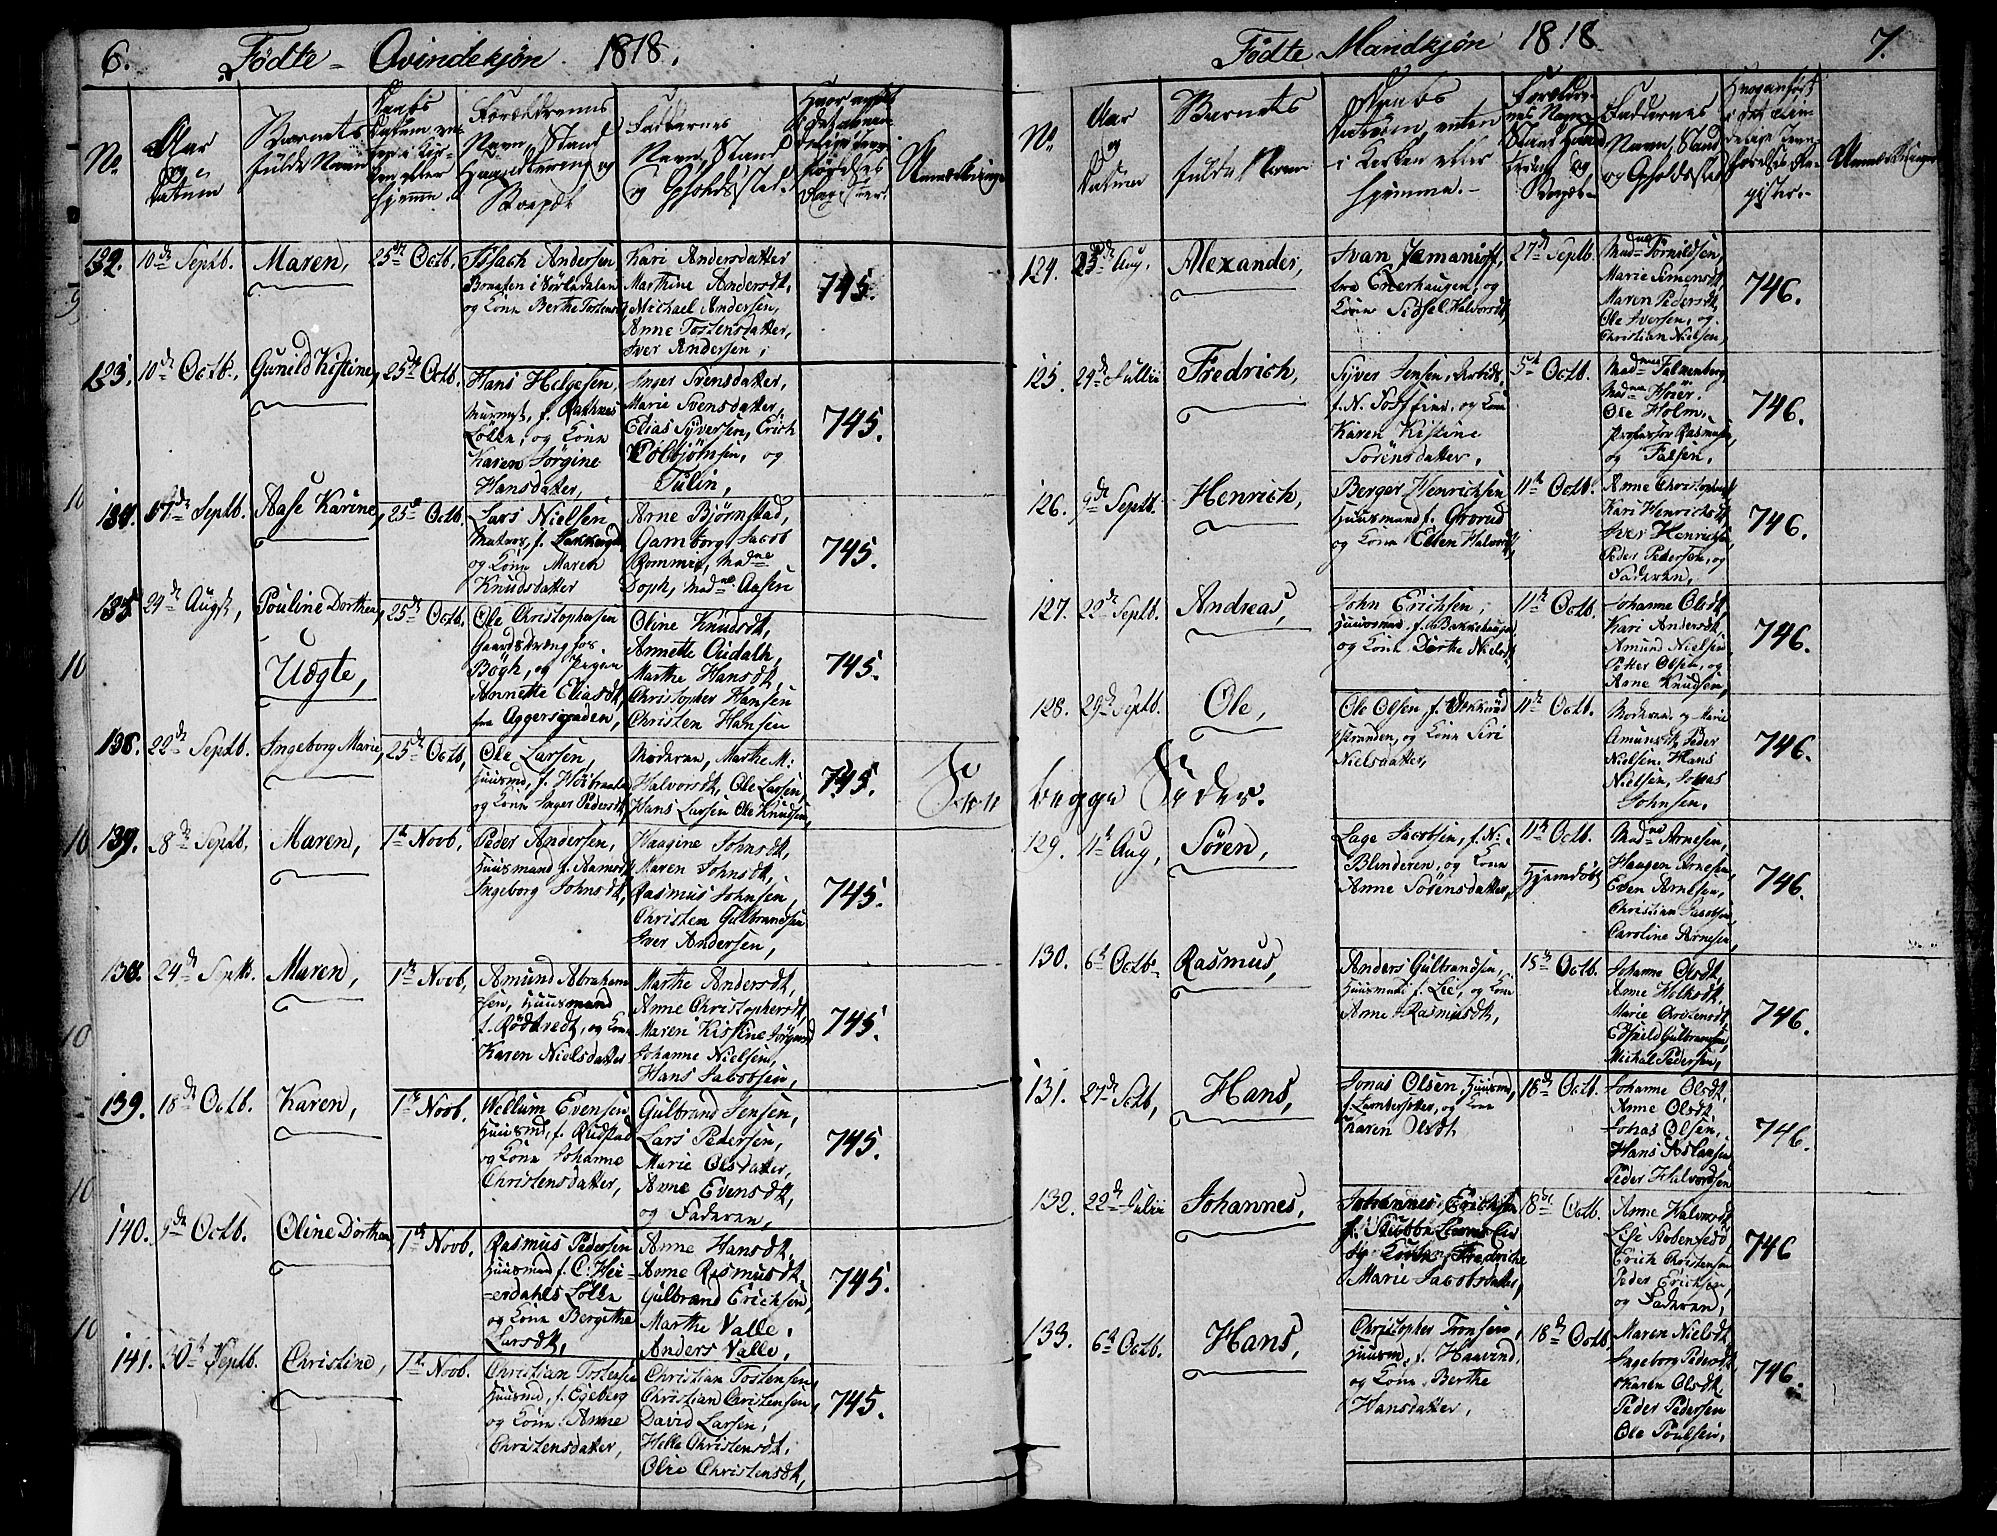 6. Fødte - Qvindekjøn. 1818.
No
Aar og Datum
Barnets fulde Navn
Daabs Datum
Forældrenes Navn, Stand, Haandtering og Boepæl
Faddernes Navn, Stand og Opholdssted
Anmærkninger
132. 10de Septb. Maren, 25de Octb.
Andersen
og Kone Berthe Tostensd
Kari Andersdatter
Marthine Andersdt,
Michael Andersen,
Anne Tostensdatter,
Iver Andersen,
745.
133. 10de Octb. Gunild Kistine, 25de Octb.
Hans Helgesen,
Løkke, og Kone
Karen Jørgine
Hansdatter,
Inger Svensdatter,
Marie Svensdatter,
Elias Syversen, Erich
Kolbjørnsen, og
Tulin,
745.
134. 17de Septb. Aase Karine, 25de Octb.
Lars Nielsen
og Kone Maren
Knudsdatter
Arne Bjørnstad,
Gamborg, Jacob
Rommen, Madme
Doph, Madme Aasen
745.
135. 29de Augst, Pouline Dorthea, 25de Octb.
Uægte,
Ole Christophersen
Gaardsdreng fos
Bøgh, og Pigen
Annette Eliasdt,
fra Aggersgaden,
Oline Knudsdt,
Annette
Marthe Hansdt,
Christopher Hansen
Christen Hansen
745.
136. 22de Septb. Ingeborg Marie, 25de Octb.
Ole Larsen,
Huusmd, f.
og Kone Inger Pedersdt,
Moderen, Marthe M:
Halvorsdt, Ole Larsen,
Hans Larsen Ole Knudsen,
745.
137. 8de Septb. Maren, 1te Novb,
Peder Andersen,
Huusmand f.
Ingeborg Johnsdt,
Haagine Johnsdt,
Maren Johnsdt,
Rasmus Johnsen,
Christen Gulbrandsen
Iver Andersen,
745.
138. 24de Septb. Maren, 1te Novb,
Amund Abraham-
sen, Huusmand
f. Rødtvedt, og Kone
Karen Nielsdatter
Marthe Andersdt,
Anne Christophersdt,
Maren Kistine
Johanne Nielsen,
Hans Jacobsen,
745.
139. 18de Octb. Karen, 1te Novb.
Wellum Evensen
Huusmd, f. Rudstad
og Kone Johanne
Christensdatter,
Gulbrand Jensen,
Lars Pedersen,
Marie Olsdatter,
Anne Evensdt,
og Faderen,
745.
140. 9de Octb. Oline Dorthea, 1te Novb.
Rasmus Pedersen
Huusmd f. C: Hei-
-erdahls Løkke
og Kone Bergithe
Larsdt,
Anne Hansdt,
Anne Rasmusdt,
Gulbrand Erichsen,
Marthe Valle,
Anders Valle,
745.
141. 30te Septb. Christine, 1te Novb.
Christian Tostensen
Huusmd, f. Egeberg
og Kone Anne
Christensdatter,
Christian Tostensen,
Christian Christensen,
David Larsen,
Helle Christensdt,
Olie Christensdt,
745.
Fødte Mandkjøn 1818 7.
No
Aar og Datum
Barnets fulde Navn
Daabs Datum, enten i Kirken eller hjemme.
Faddernes Navn, Stand og Opholdssted
Anmærkninger
124. 23de Aug. Alexander, 27de Septb.
Ivan
fra Enerhaugen, og
Kone Sidsel Halvorsdt,
Marie Simensdt,
Maren Pedersdt,
Ole Iversen, og
Christian Nielsen,
746.
125. 29de Julii Fredrich, 5te Octb.
Syver Jensen, Arbids.
og Kone
Karen Kistine
Sørensdatter,
Madme Falkenberg,
Madme Høier,
Ole Holm,
Professor Rasmusen,
og Falsen,
746.
126. 9de Septb. Henrich, 11te Octb.
Berger Henrichsen
Huusmand f. Grorud
og Kone Ellen Halvorsdt,
Anne Christophersdt
Kari Henrichsdt,
Iver Henrichsen,
Peder Pedersen, og
Faderen,
746.
127. 22de Septb. Andreas, 11te Octb.
John Erichsen,
Huusmand, f. Bakkehaugen
og Kone Dorthe Nielsdt,
Johanne Olsdt,
Kari Andersdt,
Amund Nielsen
Petter Olsen, og
Arne Knudsen,
746.
128. 29de Septb. Ole, 11te Octb.
Ole Olsen f.
Stranden, og Kone Siri
Nielsdatter,
Moderen, og Marie
Amundsdt, Peder
Nielsen, Hans
Nielsen, Jonas
Johnsen,
746.
begge Sider.
129. 11te Aug, Søren, 11te Octb.
Hjemdøbt
Lage Jacobsen, f. N:
Blinderen, og Kone
Anne Sørensdatter,
Madme Arnesen,
Haagen Arnesen,
Even Arnesen,
Christian Jacobsen,
Caroline Arnesen,
746.
130. 6te Octb. Rasmus, 15de Octb.
Anders Gulbrandsen,
Huusmand f. Lie, og Kone
Anne Rasmusdt,
Johanne Olsdt,
Anne
Marie
Gulbrandsen,
Michal Pedersen,
746.
131. 27de Setb, Hans, 18de Octb.
Jonas Olsen Huusmd,
f. Lambersæter, og Kone
Karen Olsdt
Johanne Olsdt,
Anne Olsdt,
Johas Olsen,
Hans Aslaksen
Peder Halvordsen
746.
132. 22de Julii Johannes, 18de Octb.
Johannes Erichsen
Kone Fredriche
Marie Jacobsdatter,
Anne Halvorsdt
Lise
Erich Christensen
Peder Erichsen,
og Faderen,
746
133. 6te Octb. Hans, 18de Octb.
Christopher Tronsen,
Huusmd, f. Haavind,
og Kone Berthe
Hansdatter,
Maren Nielsdt,
Ingeborg Pedersdt
Karen Olsdt,
Peder Pedersen
Ole Poulsen,
746.